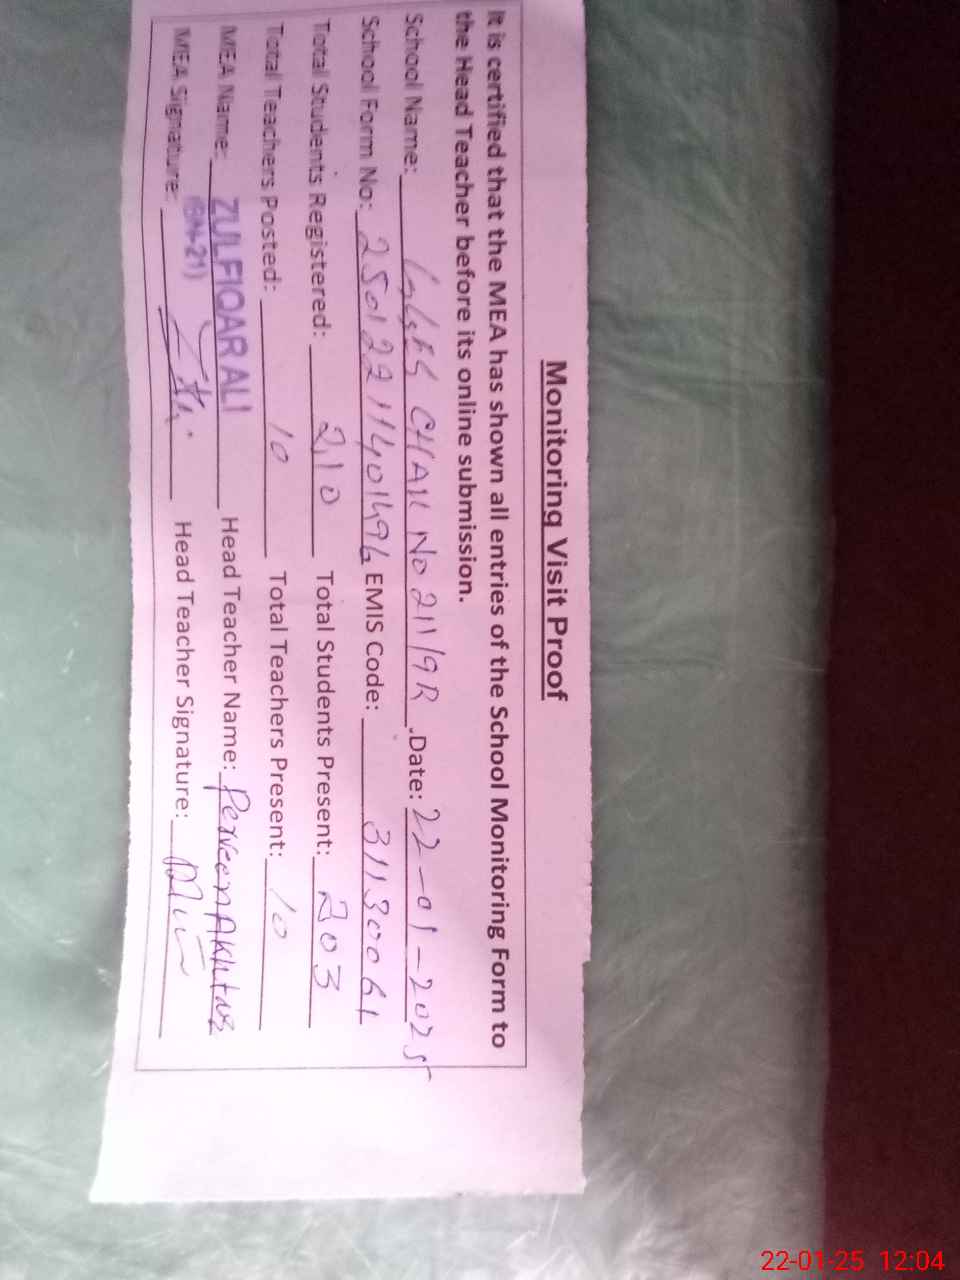 Monitoring Visit Proof
It is certified that the MEA has shown all entries of the School Monitoring Form to
the Head Teacher before its online submission.
School Name: GGES CHAK NO 211/9R .Date: 22-01-2025
School Form No: 2501221401496 EMIS Code: 31130061
Total Students Registered: 210 Total Students Present: 203
Total Teachers Posted: 10 Total Teachers Present: 10
MEA Name: ZULFIQAR ALI Head Teacher Name: Perveen Akhtar
MEA Signature: Head Teacher Signature:
22-01-25 12:04